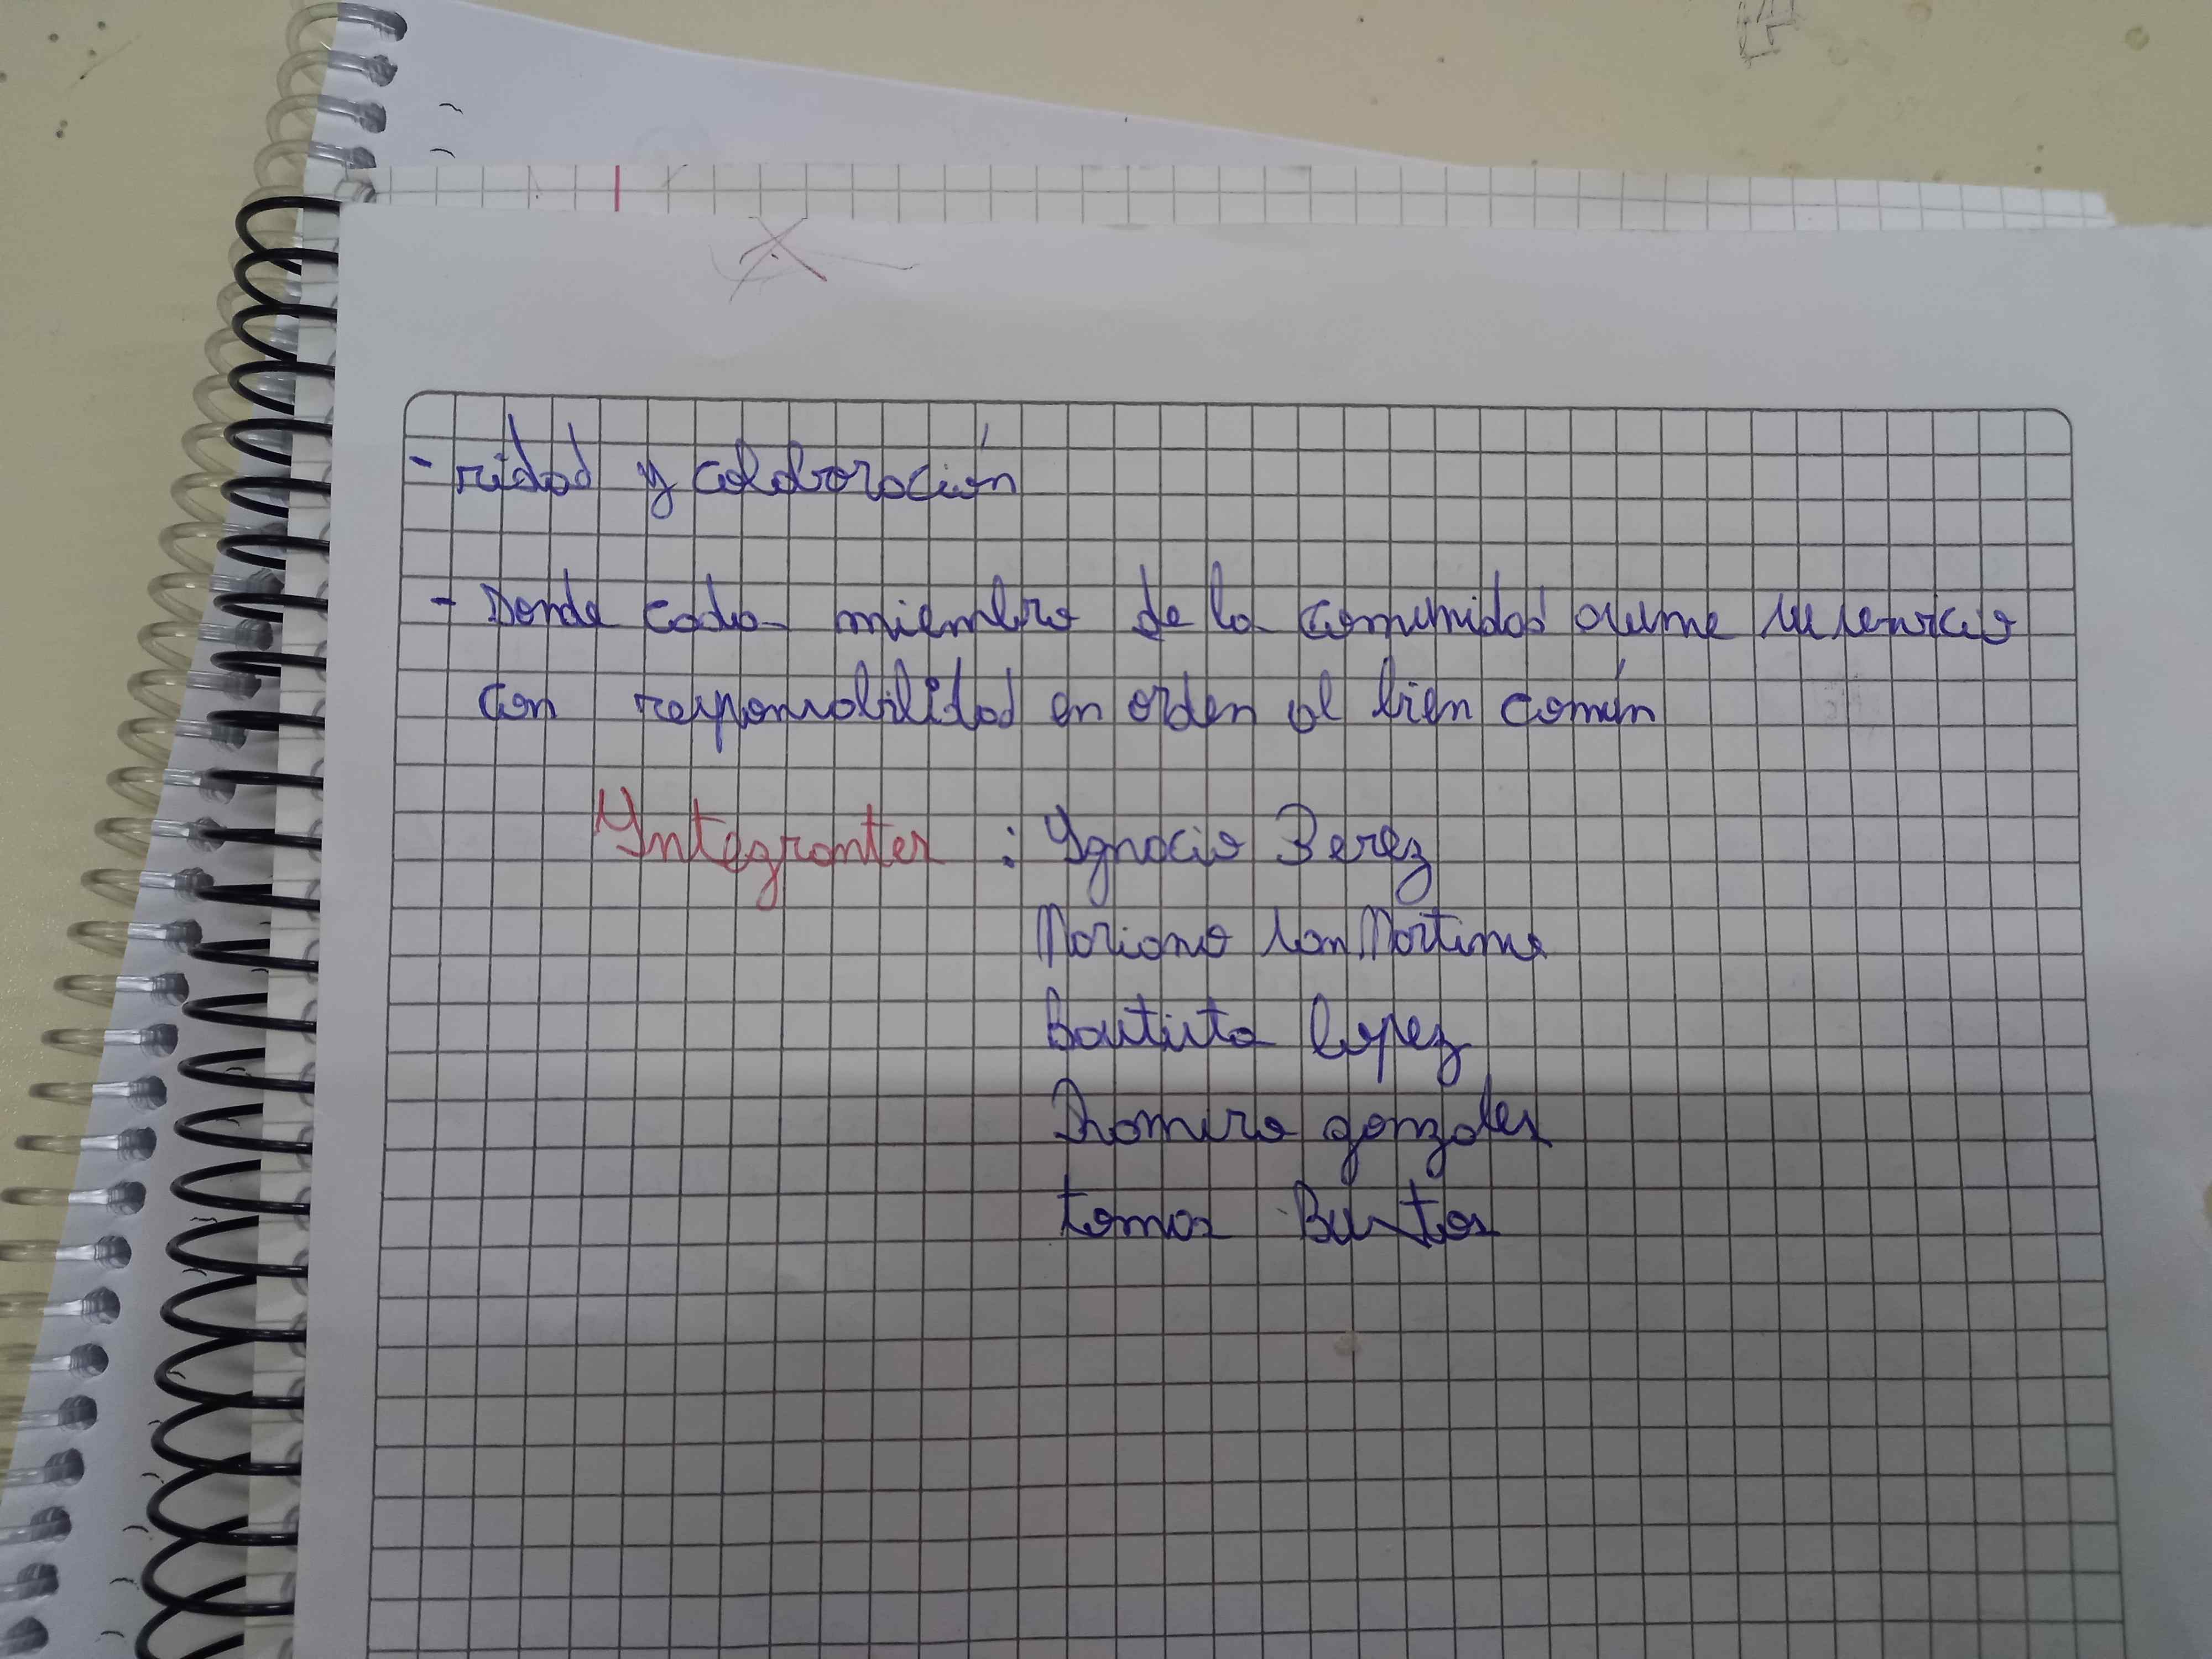 - ridad y colaboración
- Donde cada miembro de la comunidad asume su servicio
con responsabilidad en orden al bien común
Integrantes : Ignacio Perez
Mariano San Martino
Bautista lopez
Ramiro gonzales
tomas Bustos